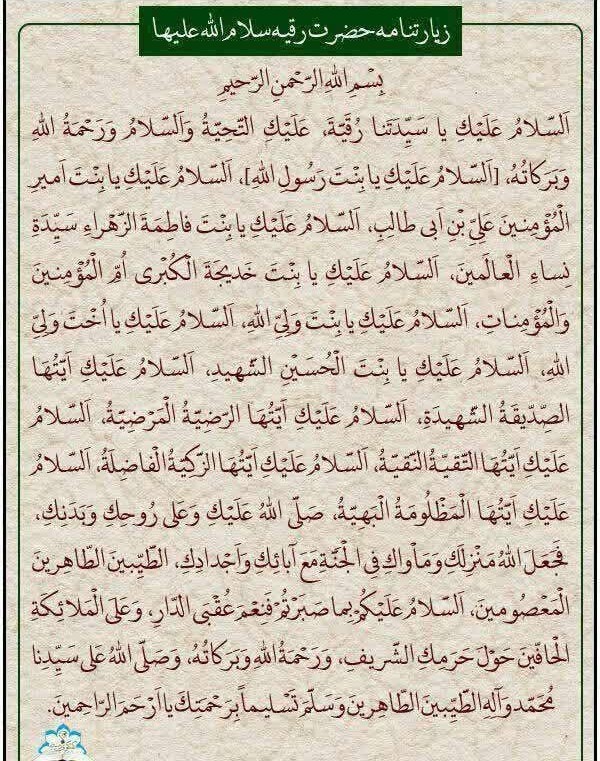 زیارتنامه حضرت رقیه سلام الله علیها
بِسْمِ اللهِ الرَّحْمنِ الرَّحیمِ
اَلسَّلامُ عَلَیْكِ یا سَیِّدَتَنا رُقَیَّةَ، عَلَیْكِ التَّحِیَّةُ وَاَلسَّلامُ وَرَحْمَةُ اللهِ
وَبَرَكاتُهُ، [اَلسَّلامُ عَلَیْكِ یا بِنْتَ رَسُولِ اللهِ]، اَلسَّلامُ عَلَیْكِ یا بِنْتَ اَمیرِ
الْمُؤْمِنینَ عَلِیِّ بْنِ اَبی طالِبٍ، اَلسَّلامُ عَلَیْكِ یا بِنْتَ فاطِمَةَ الزَّهْراءِ سَیِّدَةِ
نِساءِ الْعالَمینَ، اَلسَّلامُ عَلَیْكِ یا بِنْتَ خَدیجَةَ الْكُبْرى اُمِّ الْمُؤْمِنینَ
وَالْمُؤْمِناتِ، اَلسَّلامُ عَلَیْكِ یا بِنْتَ وَلِیِّ اللهِ، اَلسَّلامُ عَلَیْكِ یا اُخْتَ وَلِیِّ
اللهِ، اَلسَّلامُ عَلَیْكِ یا بِنْتَ الْحُسَیْنِ الشَّهیدِ، اَلسَّلامُ عَلَیْكِ اَیَّتُهَا
الصِّدّیقَةُ الشَّهیدَةِ، اَلسَّلامُ عَلَیْكِ اَیَّتُهَا الرَّضِیَّةُ الْمَرْضِیَّةُ، اَلسَّلامُ
عَلَیْكِ اَیَّتُهَا التَّقیَّةُ النَّقیَّةُ، اَلسَّلامُ عَلَیْكِ اَیَّتُهَا الزَّكِیَّةُ الْفاضِلَةُ، اَلسَّلامُ
عَلَیْكِ اَیَّتُهَا الْمَظْلُومَةُ الْبَهِیَّةُ، صَلَّى اللهُ عَلَیْكِ وَعَلى رُوحِكِ وَبَدَنِكِ،
فَجَعَلَ اللهُ مَنْزِلَكِ وَمَأواكِ فِی الْجَنَّةِ مَعَ آبائِكِ وَاَجْدادِكِ، الطَّیِّبینَ الطّاهِرینَ
الْمَعْصُومینَ، اَلسَّلامُ عَلَیْكُمْ بِما صَبَرْتُمْ فَنِعْمَ عُقْبَى الدّارِ، وَعَلَى الْمَلائِكَةِ
الْحافّینَ حَوْلَ حَرَمِكِ الشَّریفِ، وَرَحْمَةُ اللهِ وَبَرَكاتُهُ، وَصَلَّى اللهُ عَلى سَیِّدِنا
مُحَمَّدٍ وَآلِهِ الطَّیِّبینَ الطّاهِرینَ وَسَلَّمَ تَسْلیماً بِرَحْمَتِكَ یا اَرْحَمَ الرّاحِمینَ.